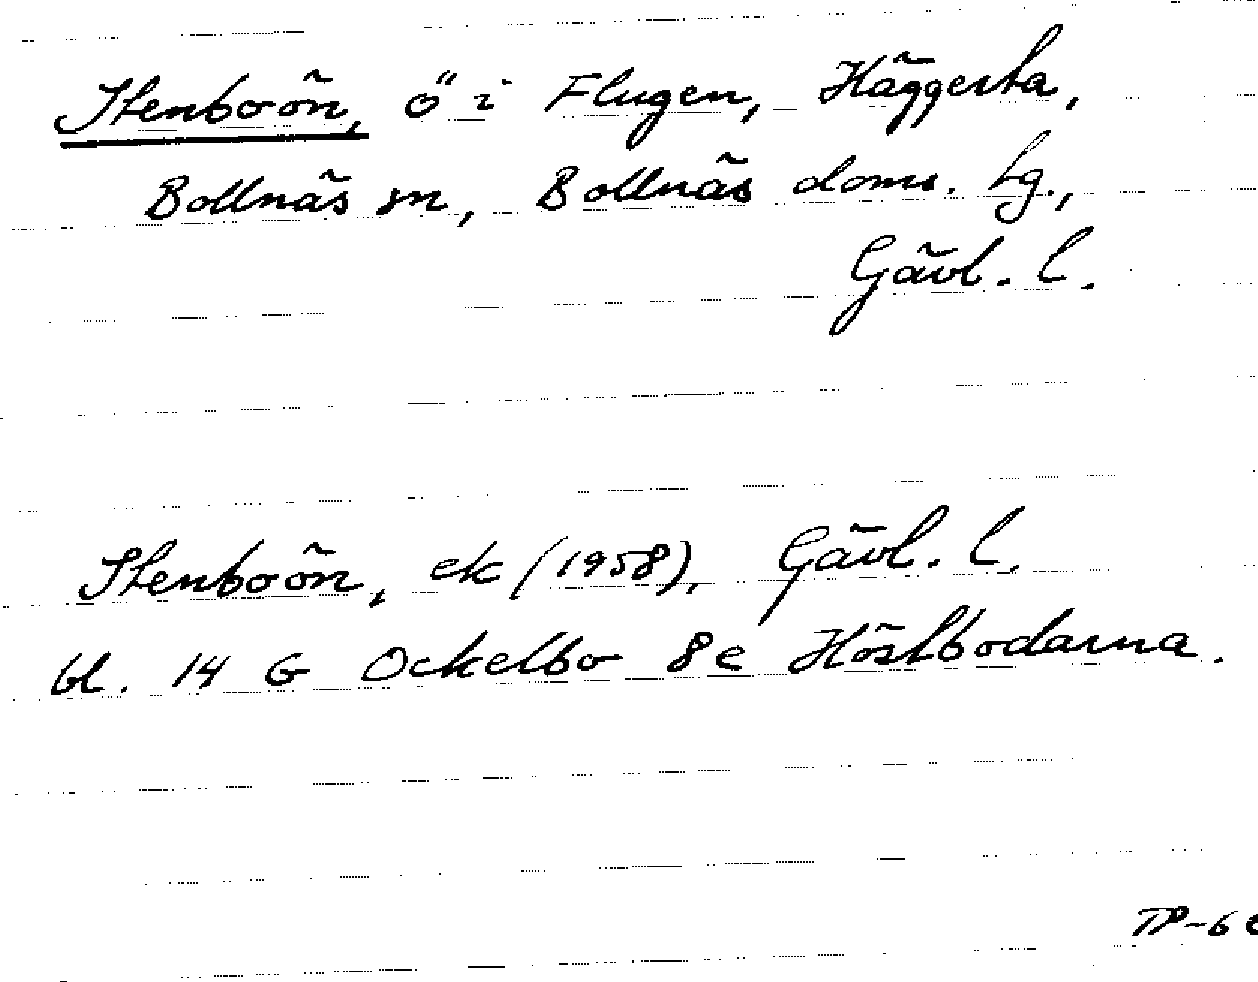 Stenboön, ö i Flugen, Häggesta,
Bollnäs sn, Bollnäs doms. hg.,
Gävl. l.
Stenboön, ek (1958), Gävl. l.
bl. 14 G Ockelbo 8e Höstbodarna.
TP-6